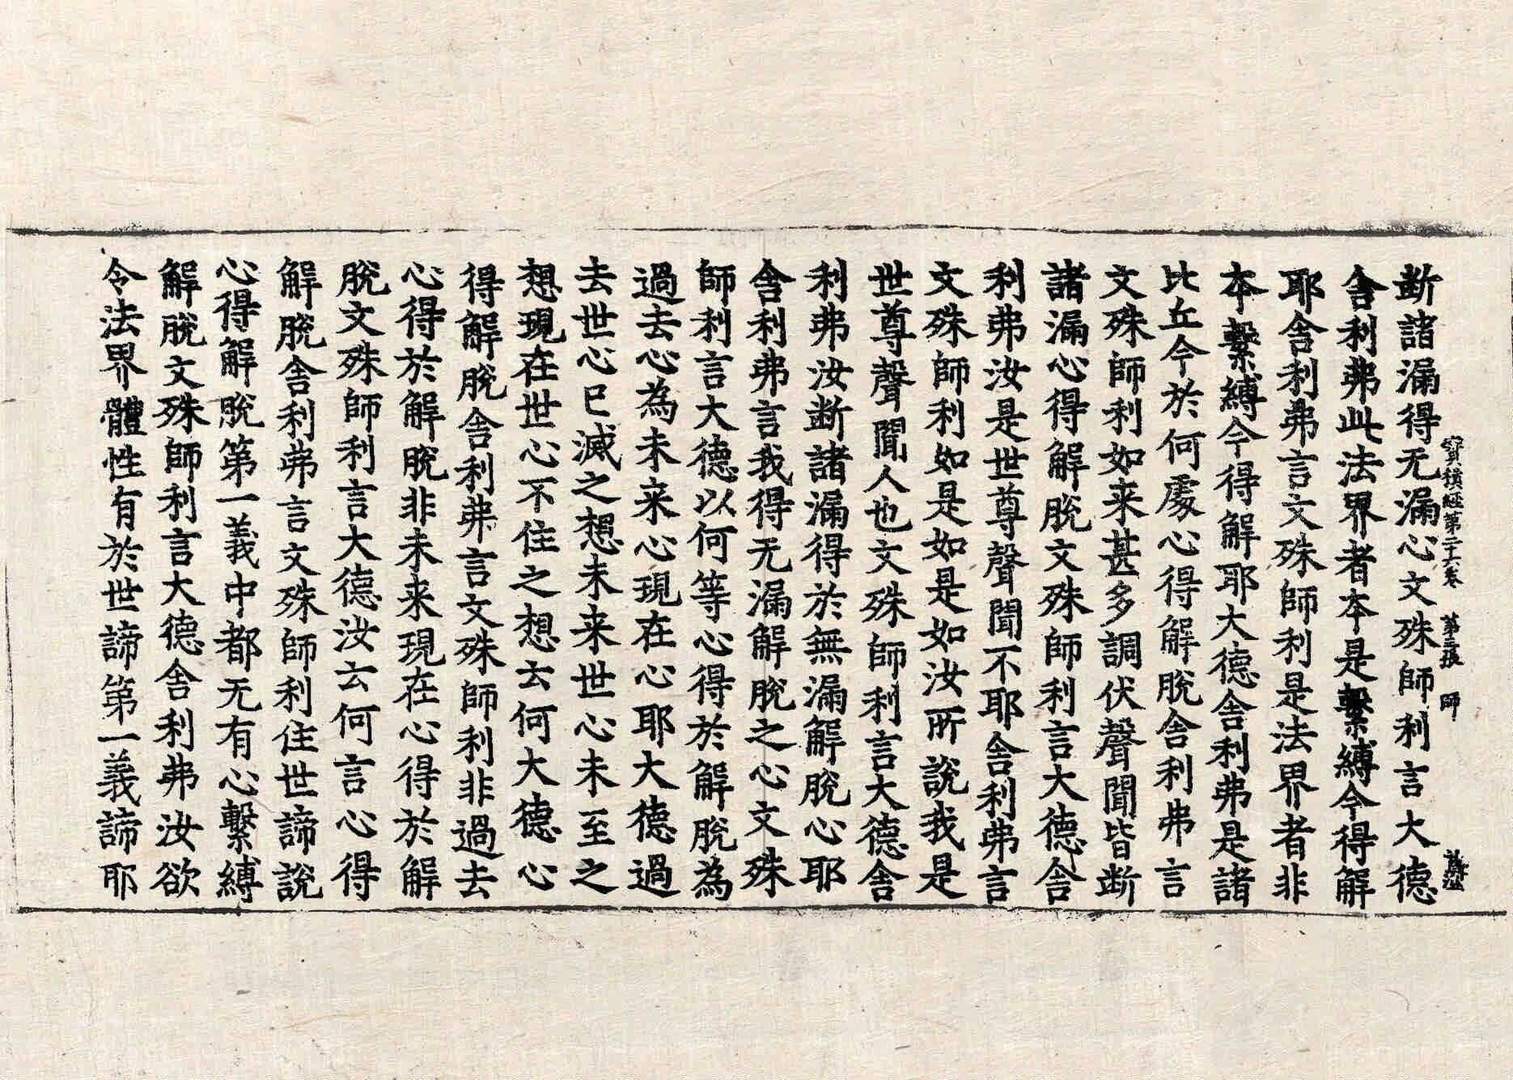 寶積經第二十六卷 第三張 師
断諸漏得无漏心文殊師利言大德
舎利弗此法界者本是繫縛今得解
耶舎利弗言文殊師利是法界者非
本繫縛今得解耶大德舎利弗是諸
比丘今於何處心得解脫舎利弗言
文殊師利如来甚多調伏聲聞皆断
諸漏心得解脫文殊師利言大德舎
利弗汝是世尊聲聞不耶舎利弗言
文殊師利如是如是如汝所說我是
世尊聲聞人也文殊師利言大德舎
利弗汝断諸漏得於無漏解脫心耶
舎利弗言我得无漏解脫之心文殊
師利言大德以何等心得於解脫為
過去心為未来心現在心耶大德過
去世心已滅之想未来世心未至之
想現在世心不住之想云何大德心
得解脫舎利弗言文殊師利非過去
心得於解脫非未来現在心得於解
脫文殊師利言大德汝云何言心得
解脫舎利弗言文殊師利住世諦說
心得解脫第一義中都无有心繫縛
解脫文殊師利言大德舎利弗汝欲
令法界體性有於世諦第一義諦耶